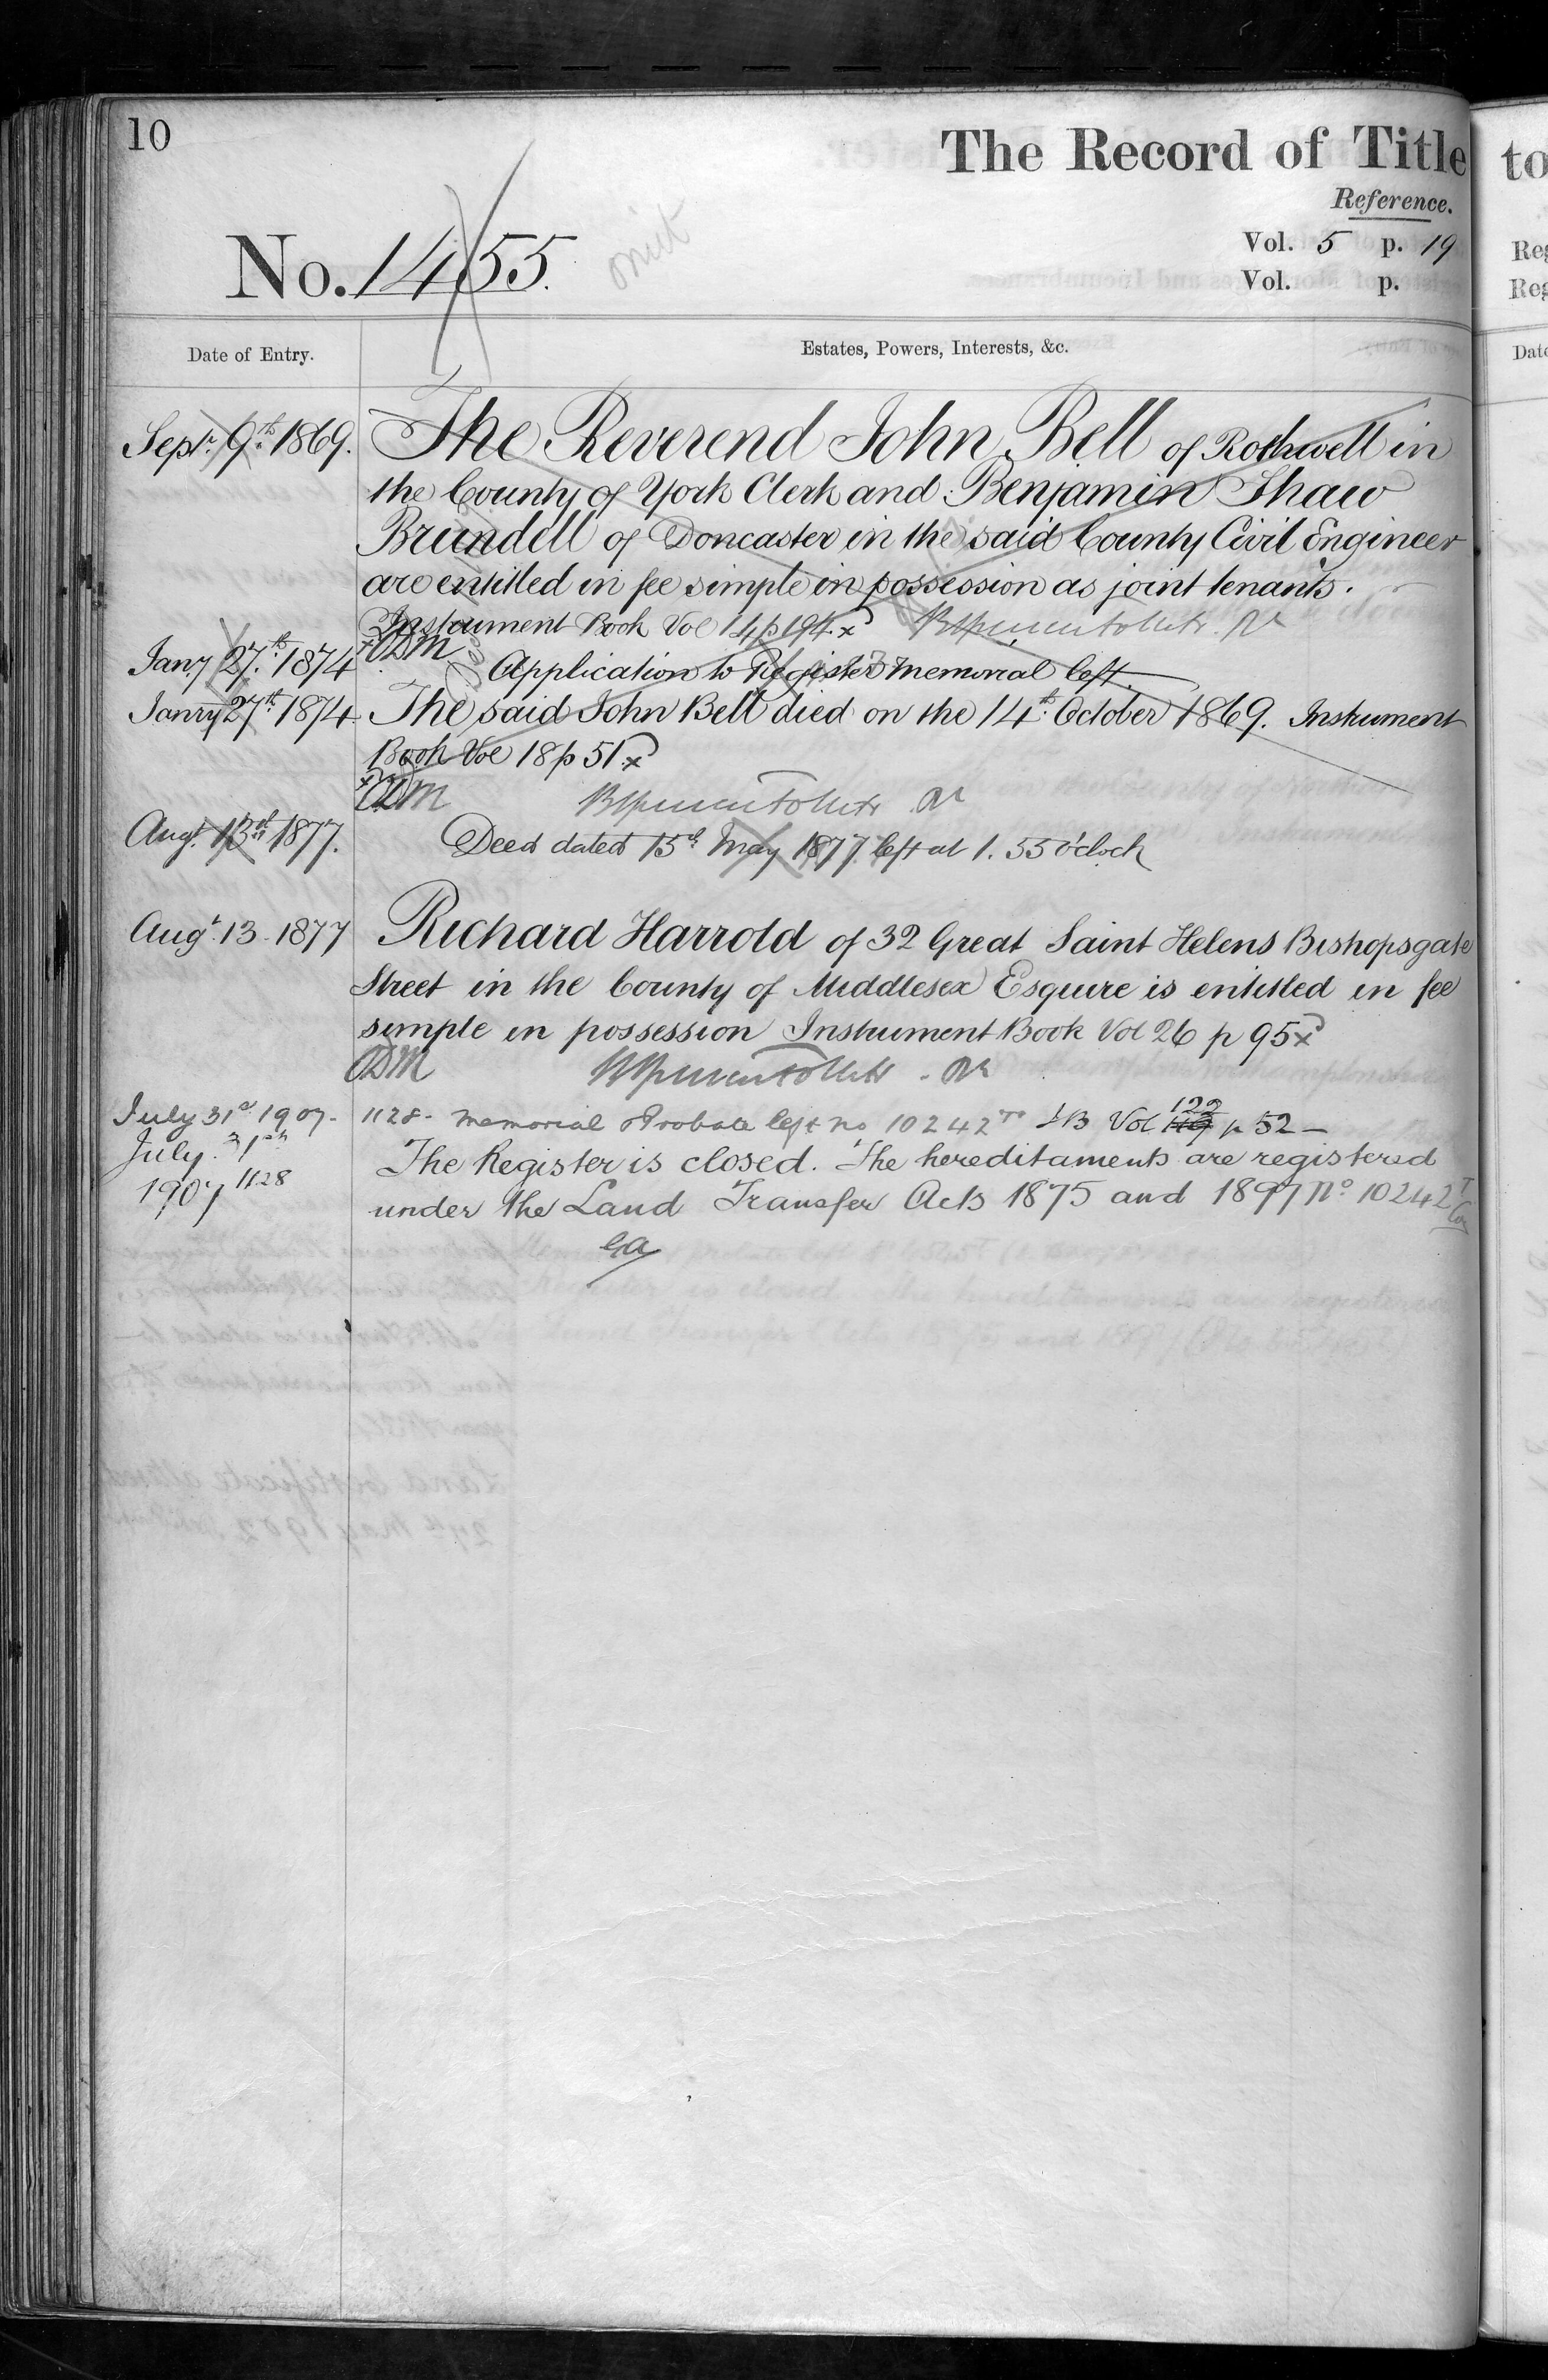 10
The Record of Title
to
Reference.
Vol. 5 p. 19
Vol. p.
Reg
Reg
No. 1455.
omit
Date of Entry.
Estates, Powers, Interests, &c.
Date
Septr. 9th. 1869. The Reverend John Bell of Rothwell in
the County of York Clerk and Benjamin Shaw
Brundell of Doncaster in the said County Civil Engineer
are entitled in fee simple in possession as joint tenants.
Instrument Book Vol 14 p 194. x
x CDM
Jany 27th. 1874 Application to Register memorial left.
Janry 27th. 1874. The said John Bell died on the 14th. October 1869. Instrument
Book Vol 18 p 51. x
x CDM
Augt. 13th 1877. Deed dated 15th. May 1877 left at 1.55 o'clock
Augt. 13 1877 Richard Harrold of 32 Great Saint Helens Bishopsgate
Street in the County of Middlesex Esquire is entitled in fee
simple in possession Instrument Book Vol 26 p 95 x
CDM
July 31st 1907 - 1128 - memorial & Probate left no 10242 To IB Vol 119 122 p 52 -
July. 31st The Register is closed. The hereditaments are registered
1907 1128 under the Land Transfer Acts 1875 and 1897 No. 10242
GA